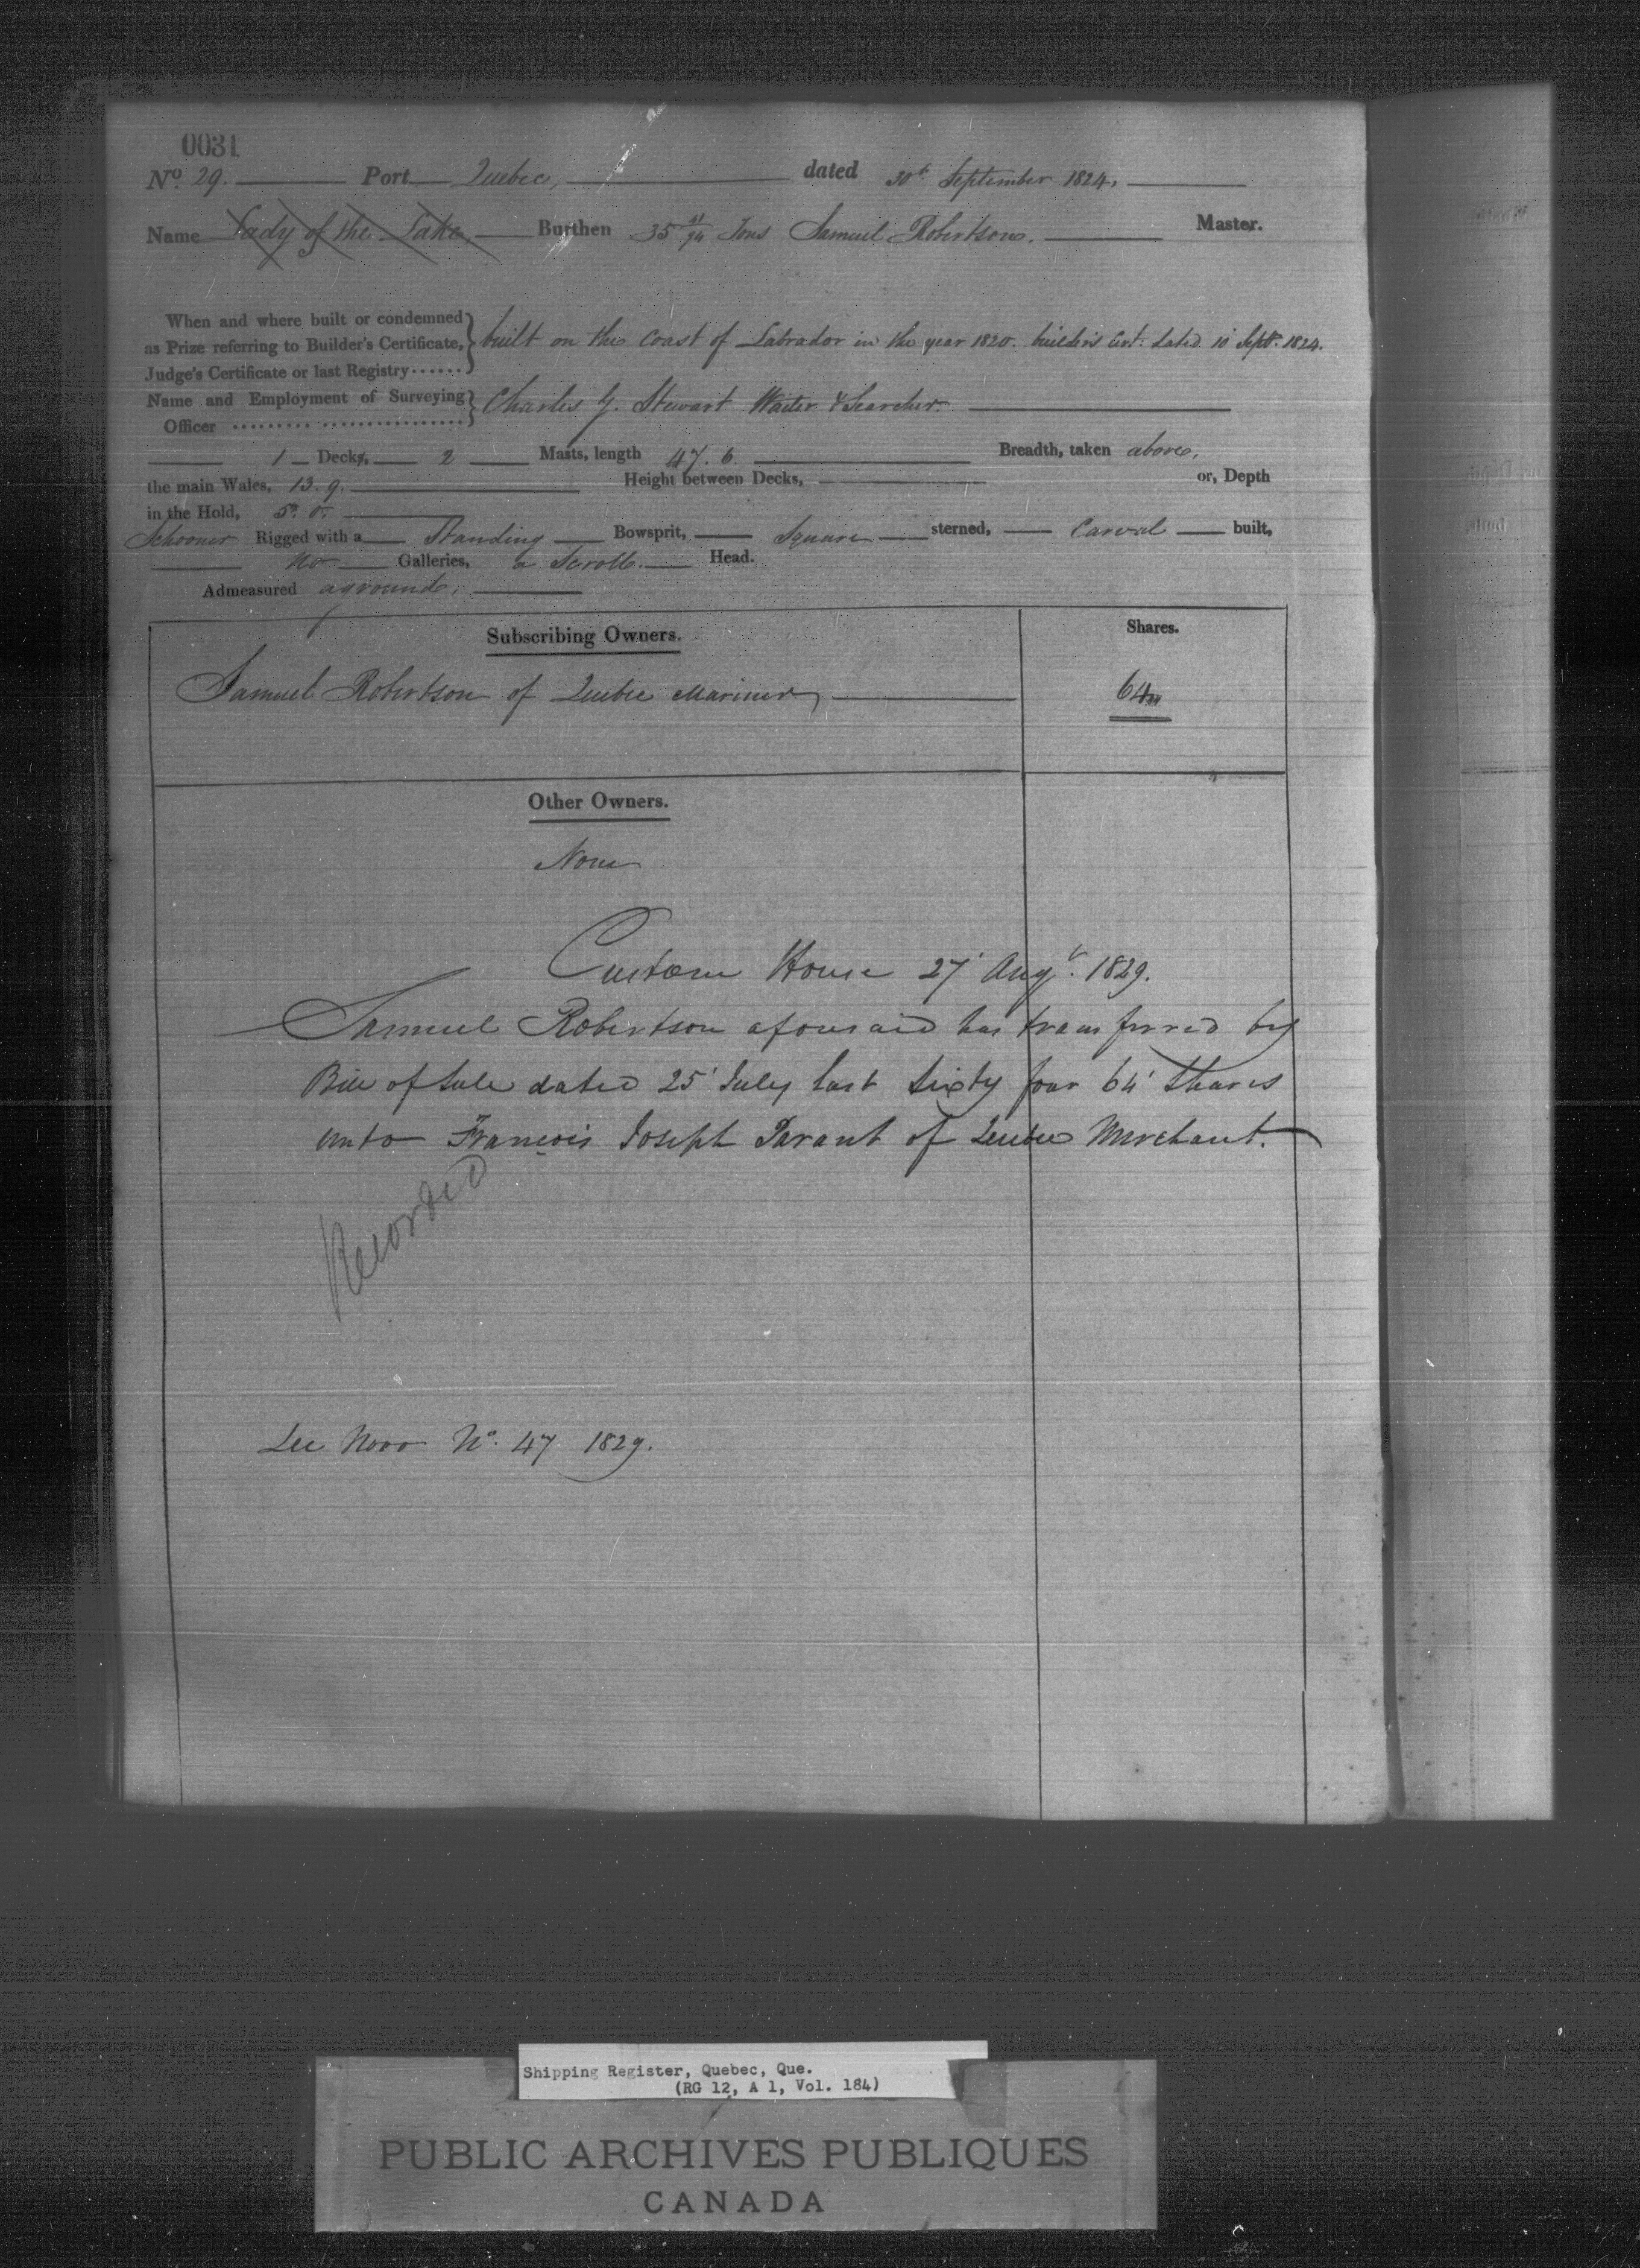 0031
No. 29. Port Quebec, dated 30th September 1824.
Name Lady of the Lake, Burthen 35 41/94 Tons Samuel Robertson. Master.
When and where built or condemned
as Prize referring to Builder's Certificate,
Judge's Certificate or last Registry......
built on the Coast of Labrador in the year 1820. builder's Cert: dated 10 Septr. 1824.
Name and Employment of Surveying
Officer
Charles G. Stewart Waiter & Searcher.
1 Decks, 2 Masts, length 47. 6 Breadth, taken above,
the main Wales, 13. 9. Height between Decks, or, Depth
in the Hold, 5. 0.
Schooner Rigged with a Standing Bowsprit, Square sterned, Carvel built,
No Galleries, a Scroll. Head.
Admeasured aground.
Subscribing Owners. Shares.
Samuel Robertson of Quebec Mariner 64
Other Owners.
None
Custom House 27' Augt. 1829.
Samuel Robertson aforesaid has transferred by
Bill of Sale dated 25' July last Sixty four 64' Shares
unto François Joseph Parant of Quebec Merchant.
Recorded
See Novo No. 47 1829.
Shipping Register, Quebec, Que.
(RG 12, A 1, Vol. 184)
PUBLIC ARCHIVES PUBLIQUES
CANADA